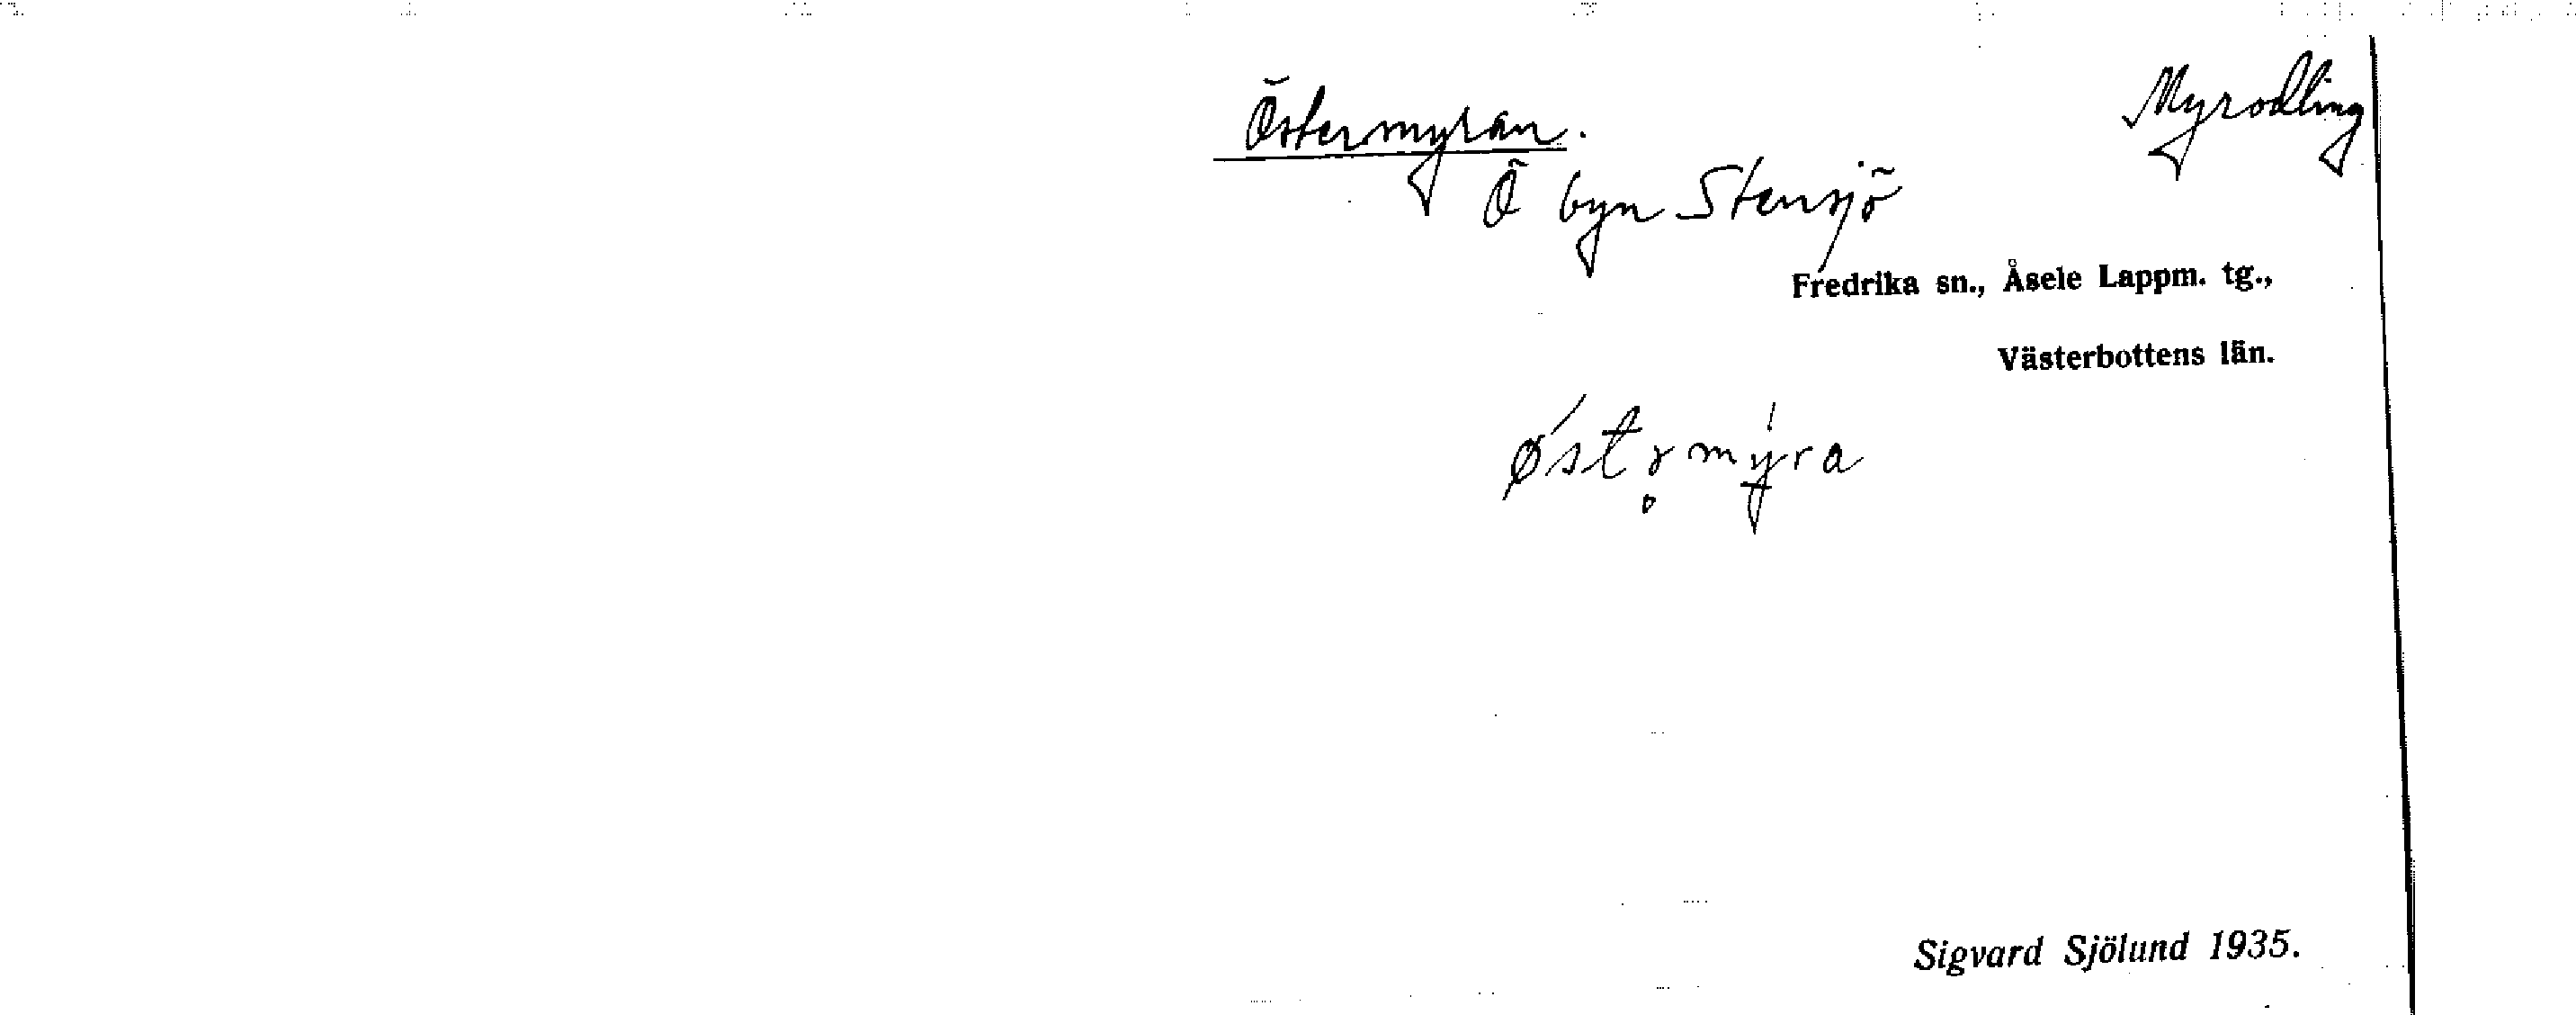 Östermyran.
Myrodling
Ö byn Stensjö
Fredrika sn., Åsele Lappm. tg.,
Västerbottens län.
Sigvard Sjölund 1935.